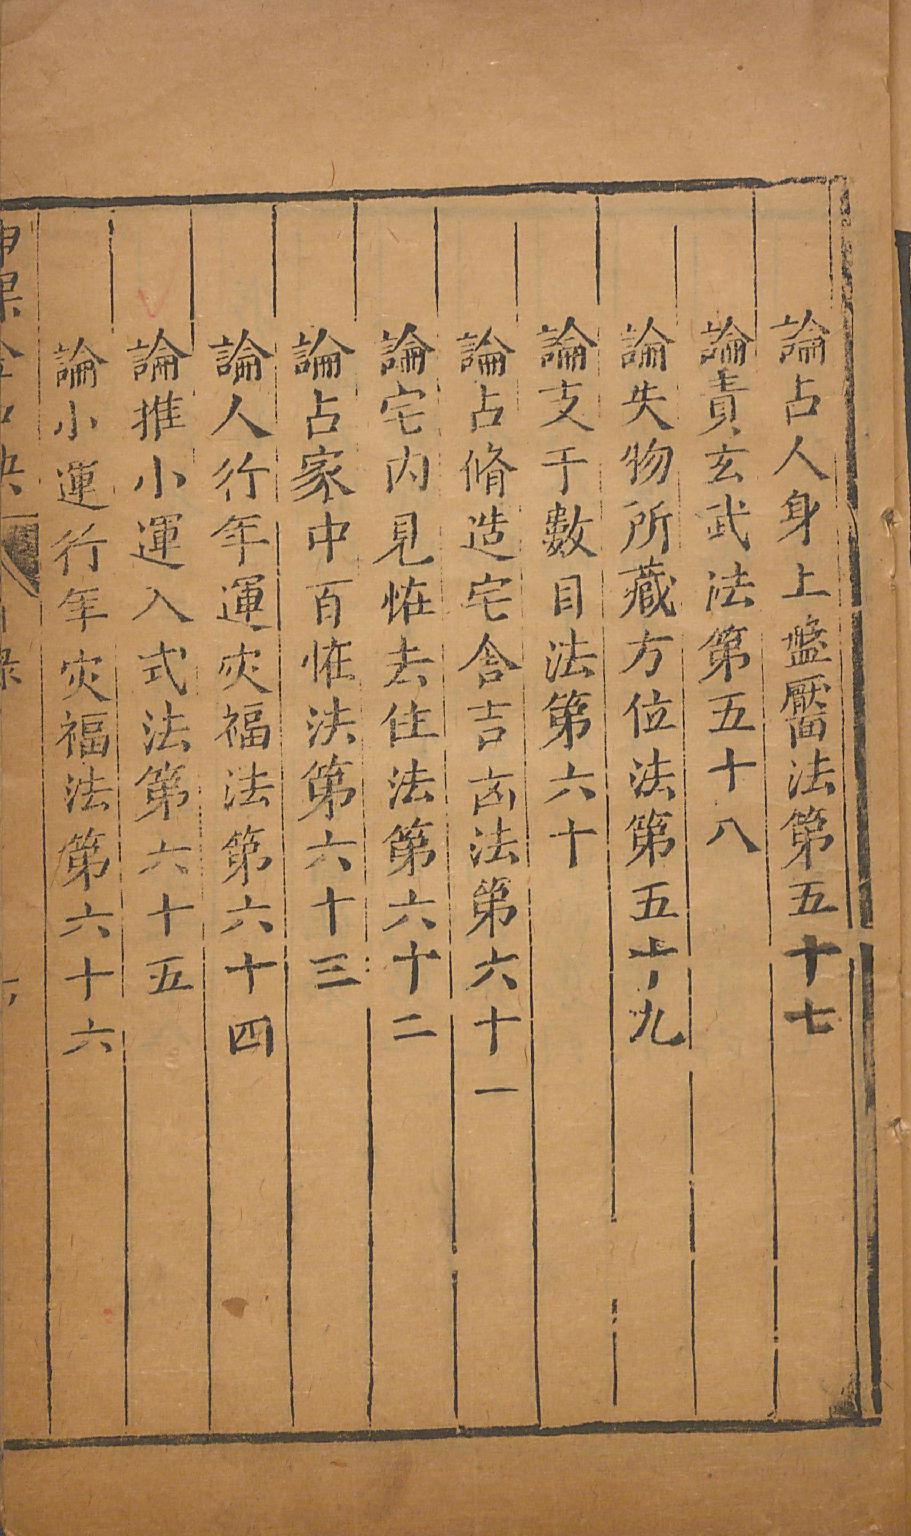 論占人身上盤厴法第五十七
論責玄武法第五十八
論失物所藏方位法第五十九
論支干數目法第六十
論占脩造宅舍吉凶法第六十一
論宅內見恠去住法第六十二
論占家中百恠法第六十三
論人行年運灾福法第六十四
論推小運入式法第六十五
論小運行年灾福法第六十六